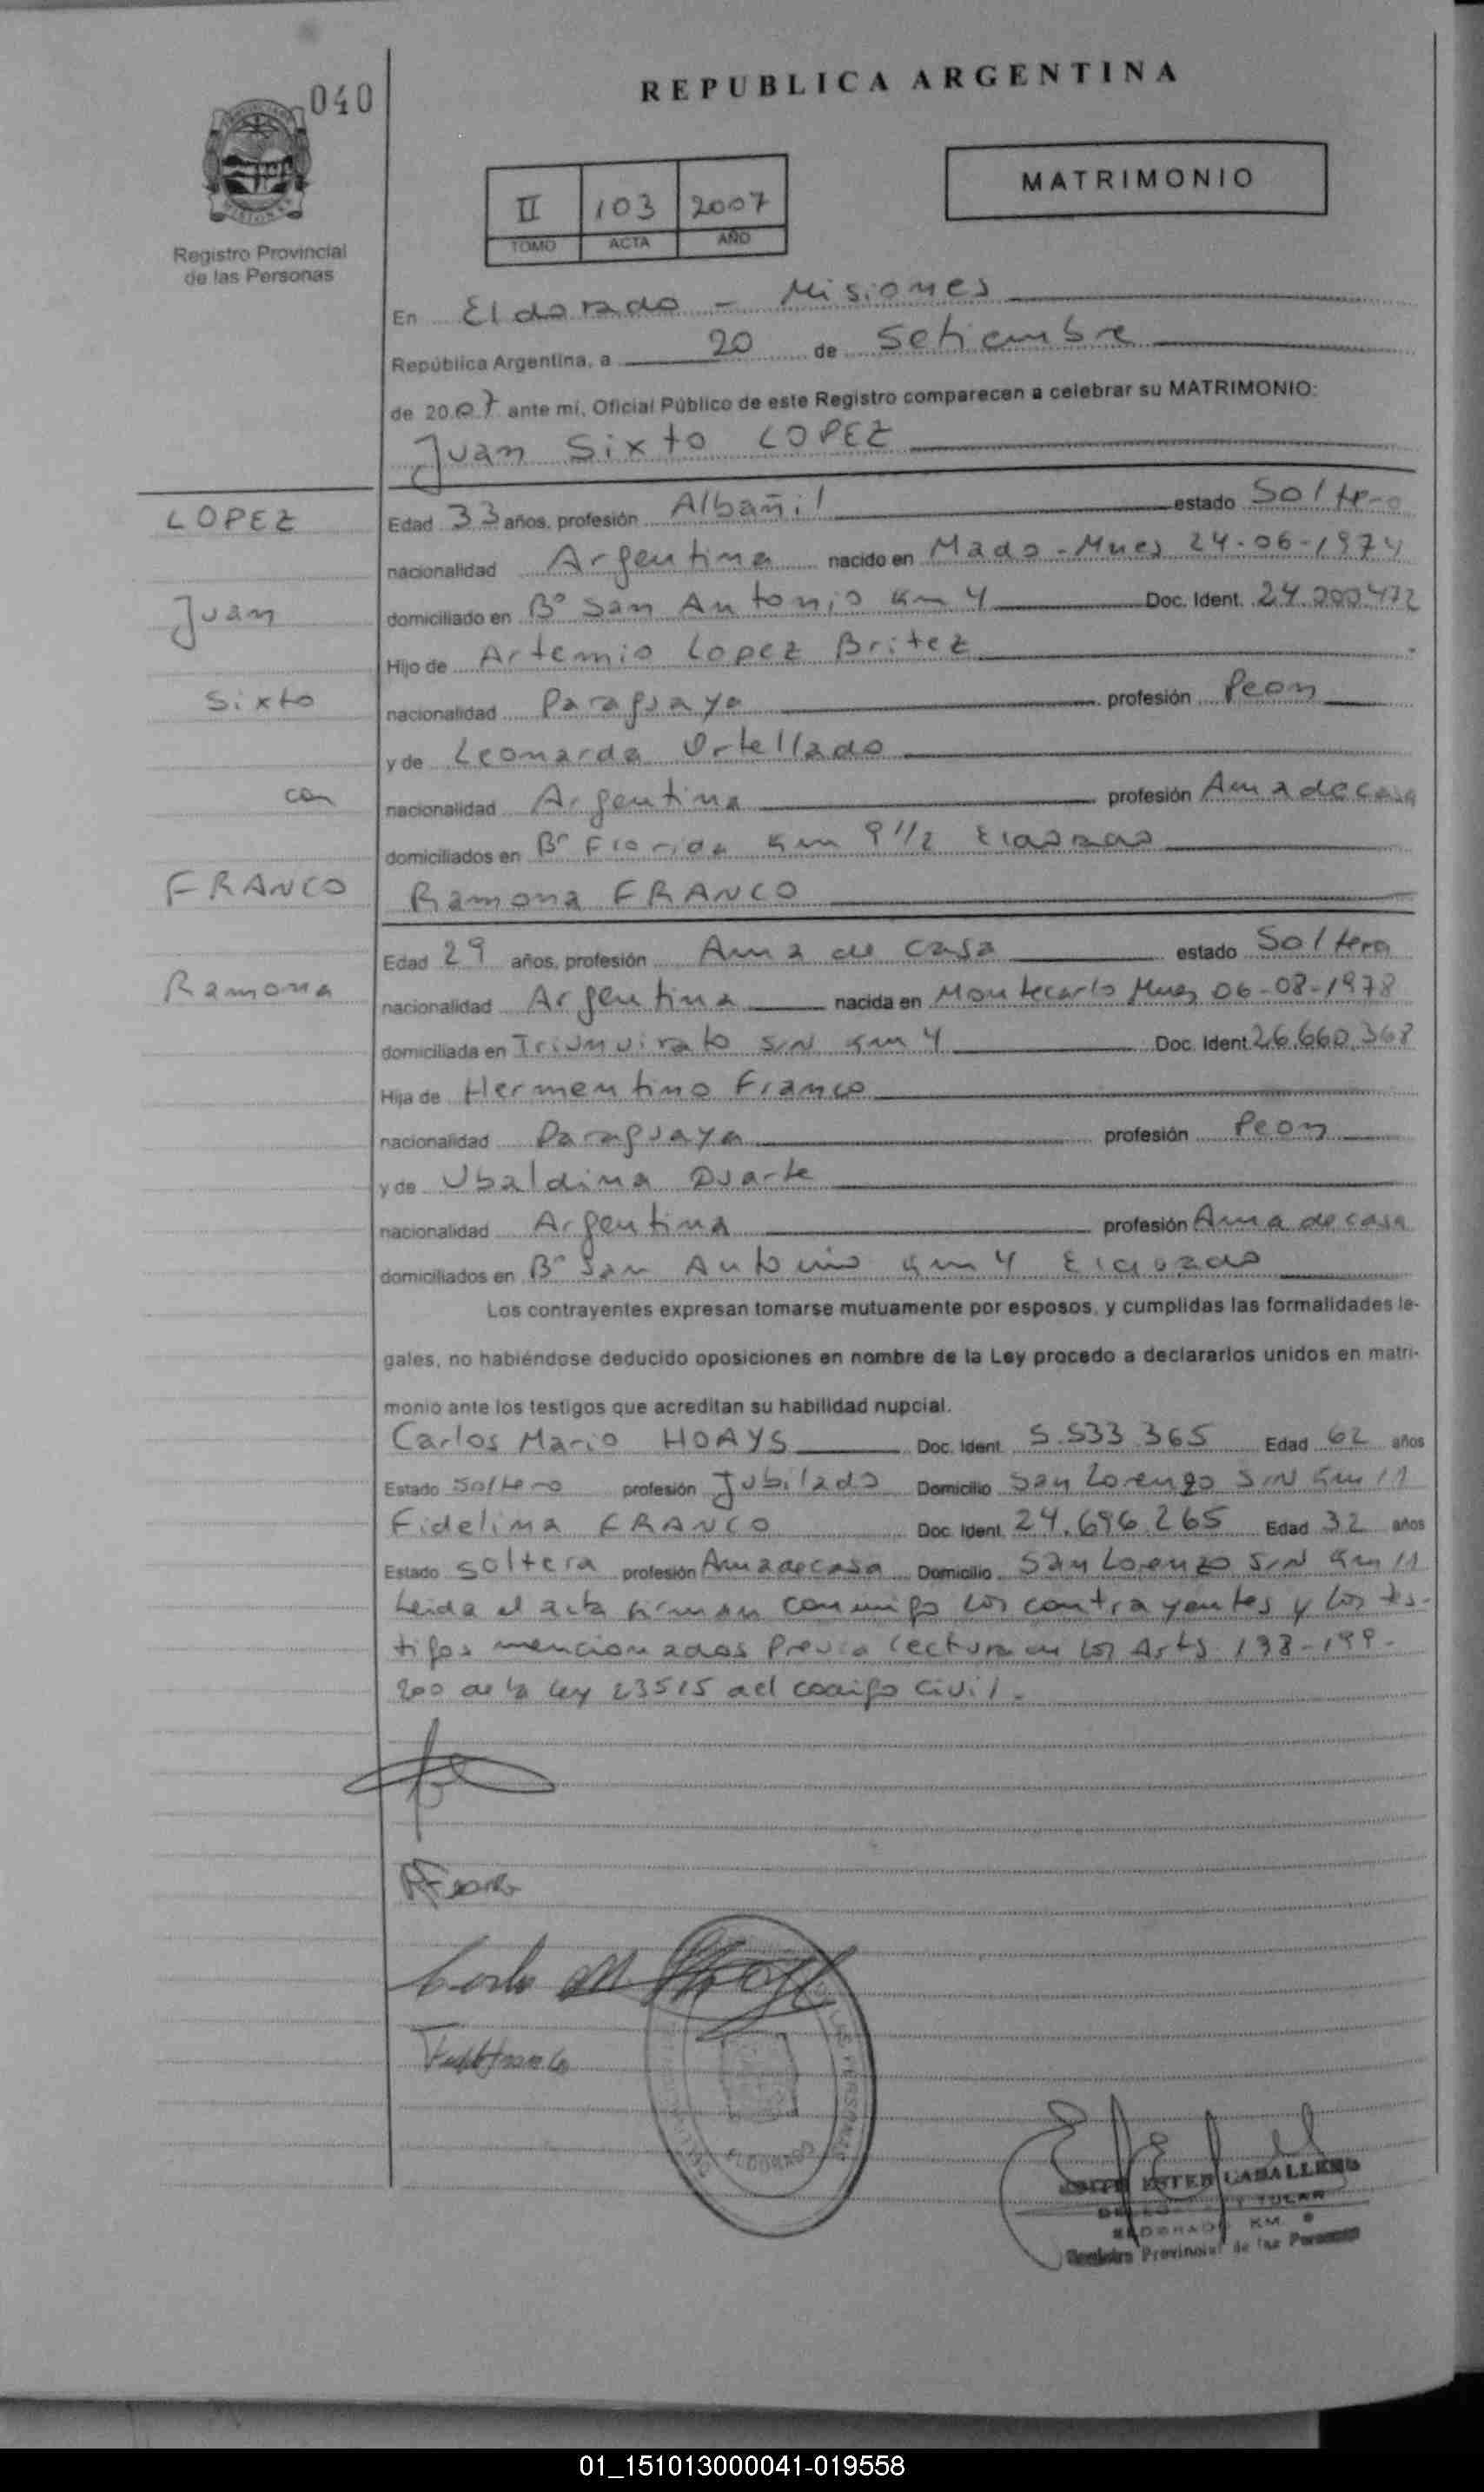 040
REPUBLICA ARGENTINA
MATRIMONIO
II 103 2007
TOMO ACTA AÑO
Registro Provincial
de las Personas
En Eldorado - Misiones
República Argentina, a 20 de Setiembre
de 2007 ante mi, Oficial Público de este Registro comparecen a celebrar su MATRIMONIO:
Juan Sixto LOPEZ
LOPEZ
Juan
Sixto
con
FRANCO
Ramona
Edad 33 años, profesión Albañil estado Soltero
nacionalidad Argentina nacido en Mado - Mnes 24-06-1974
domiciliado en Bº San Antonio Km 4 Doc. Ident. 24.000472
Hijo de Artemio Lopez Britez
nacionalidad Paraguaya profesión Peon
y de Leonarda Ortellado
nacionalidad Argentina profesión Ama de casa
domiciliados en Bº Florida Km 9 1/2 Eldorado
Ramona FRANCO
Edad 29 años, profesión Ama de casa estado Soltera
nacionalidad Argentina nacida en Montecarlo Mnes 06-08-1978
domiciliada en Triunvirato S/N Km 4 Doc. Ident. 26.660.368
Hija de Hermentino Franco
nacionalidad Paraguaya profesión Peon
y de Ubaldina Duarte
nacionalidad Argentina profesión Ama de casa
domiciliados en Bº San Antonio Km 4 Eldorado
Los contrayentes expresan tomarse mutuamente por esposos, y cumplidas las formalidades le-
gales, no habiéndose deducido oposiciones en nombre de la Ley procedo a declararlos unidos en matri-
monio ante los testigos que acreditan su habilidad nupcial.
Carlos Mario HOAYS Doc. Ident. 5.533.365 Edad 62 años
Estado Soltero profesión Jubilado Domicilio San Lorenzo S/N Km 11
Fidelina FRANCO Doc. Ident. 24.696.265 Edad 32 años
Estado Soltera profesión Ama de casa Domicilio San Lorenzo S/N Km 11
Leida el acta firman conmigo los contrayentes y los tes-
tigos mencionados Previa lectura de los Arts 198-199-
200 de la Ley 23515 del codigo Civil.
RFranco
ELDORADO
EDITH ESTER CABALLERO
ELDORADO KM. 9
Registro Provincial de las Personas
01_151013000041-019558